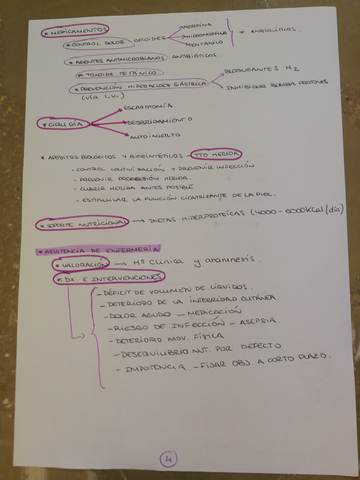 * MEDICAMENTOS
* CONTROL DOLOR → OPIOIDES → MORFINA
HIDROMORFONA + ANSIOLÍTICOS.
FENTANILO
* AGENTES ANTIMICROBIANOS → ANTIBIÓTICOS.
* TOXOIDE TETÁNICO.
* PREVENCIÓN HIPERACIDEZ GÁSTRICA → BLOQUEANTES H2
(vía i.v.) INHIBIDOR BOMBA PROTONES
* CIRUGÍA → ESCAROTOMÍA
DESBRIDAMIENTO
AUTOINJERTO
* APÓSITOS BIOLÓGICOS Y BIOSINTÉTICOS → TTO. HERIDA
- CONTROL COLONIZACIÓN Y PREVENIR INFECCIÓN
- PREVENIR PROGRESIÓN HERIDA.
- CUBRIR HERIDA ANTES POSIBLE
- ESTIMULAR LA FUNCIÓN CICATRIZANTE DE LA PIEL.
* SOPORTE NUTRICIONAL → DIETAS HIPERPROTEÍCAS (4000 - 6000 KCal/día)
* ASISTENCIA DE ENFERMERÍA
* VALORACIÓN → Hª Clínica y anamnesis.
* DX E INTERVENCIONES
- DÉFICIT DE VOLUMEN DE LÍQUIDOS.
- DETERIORO DE LA INTEGRIDAD CUTÁNEA
- DOLOR AGUDO - MEDICACIÓN
- RIESGO DE INFECCIÓN - ASEPSIA
- DETERIORO MOV. FÍSICA
- DESEQUILIBRIO NUT. POR DEFECTO
- IMPOTENCIA - FIJAR OBJ. A CORTO PLAZO.
4